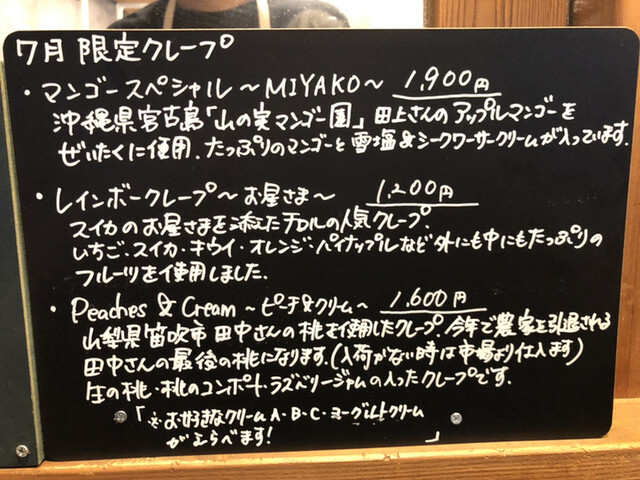 7月 限定クレープ
・マンゴースペシャル ～MIYAKO～ 1,900円
沖縄県宮古島「山の実マンゴー園」田上さんのアップルマンゴーを
ぜいたくに使用。たっぷりのマンゴーと雪塩&シークワーサークリームが入っています。
・レインボークレープ～お星さま～ 1,200円
スイカのお星さまを添えたチロルの人気クレープ。
いちご・スイカ・キウイ・オレンジ・パイナップルなど外にも中にもたっぷりの
フルーツを使用しました。
・Peaches & Cream ～ピーチ&クリーム～ 1,600円
山梨県笛吹市 田中さんの桃を使用したクレープ。今年で農家を引退される
田中さんの最後の桃になります。(入荷がない時は市場より仕入ます)
生の桃・桃のコンポート・ラズベリージャムの入ったクレープです。
「※お好きなクリームA・B・C・ヨーグルトクリーム
がえらべます!」